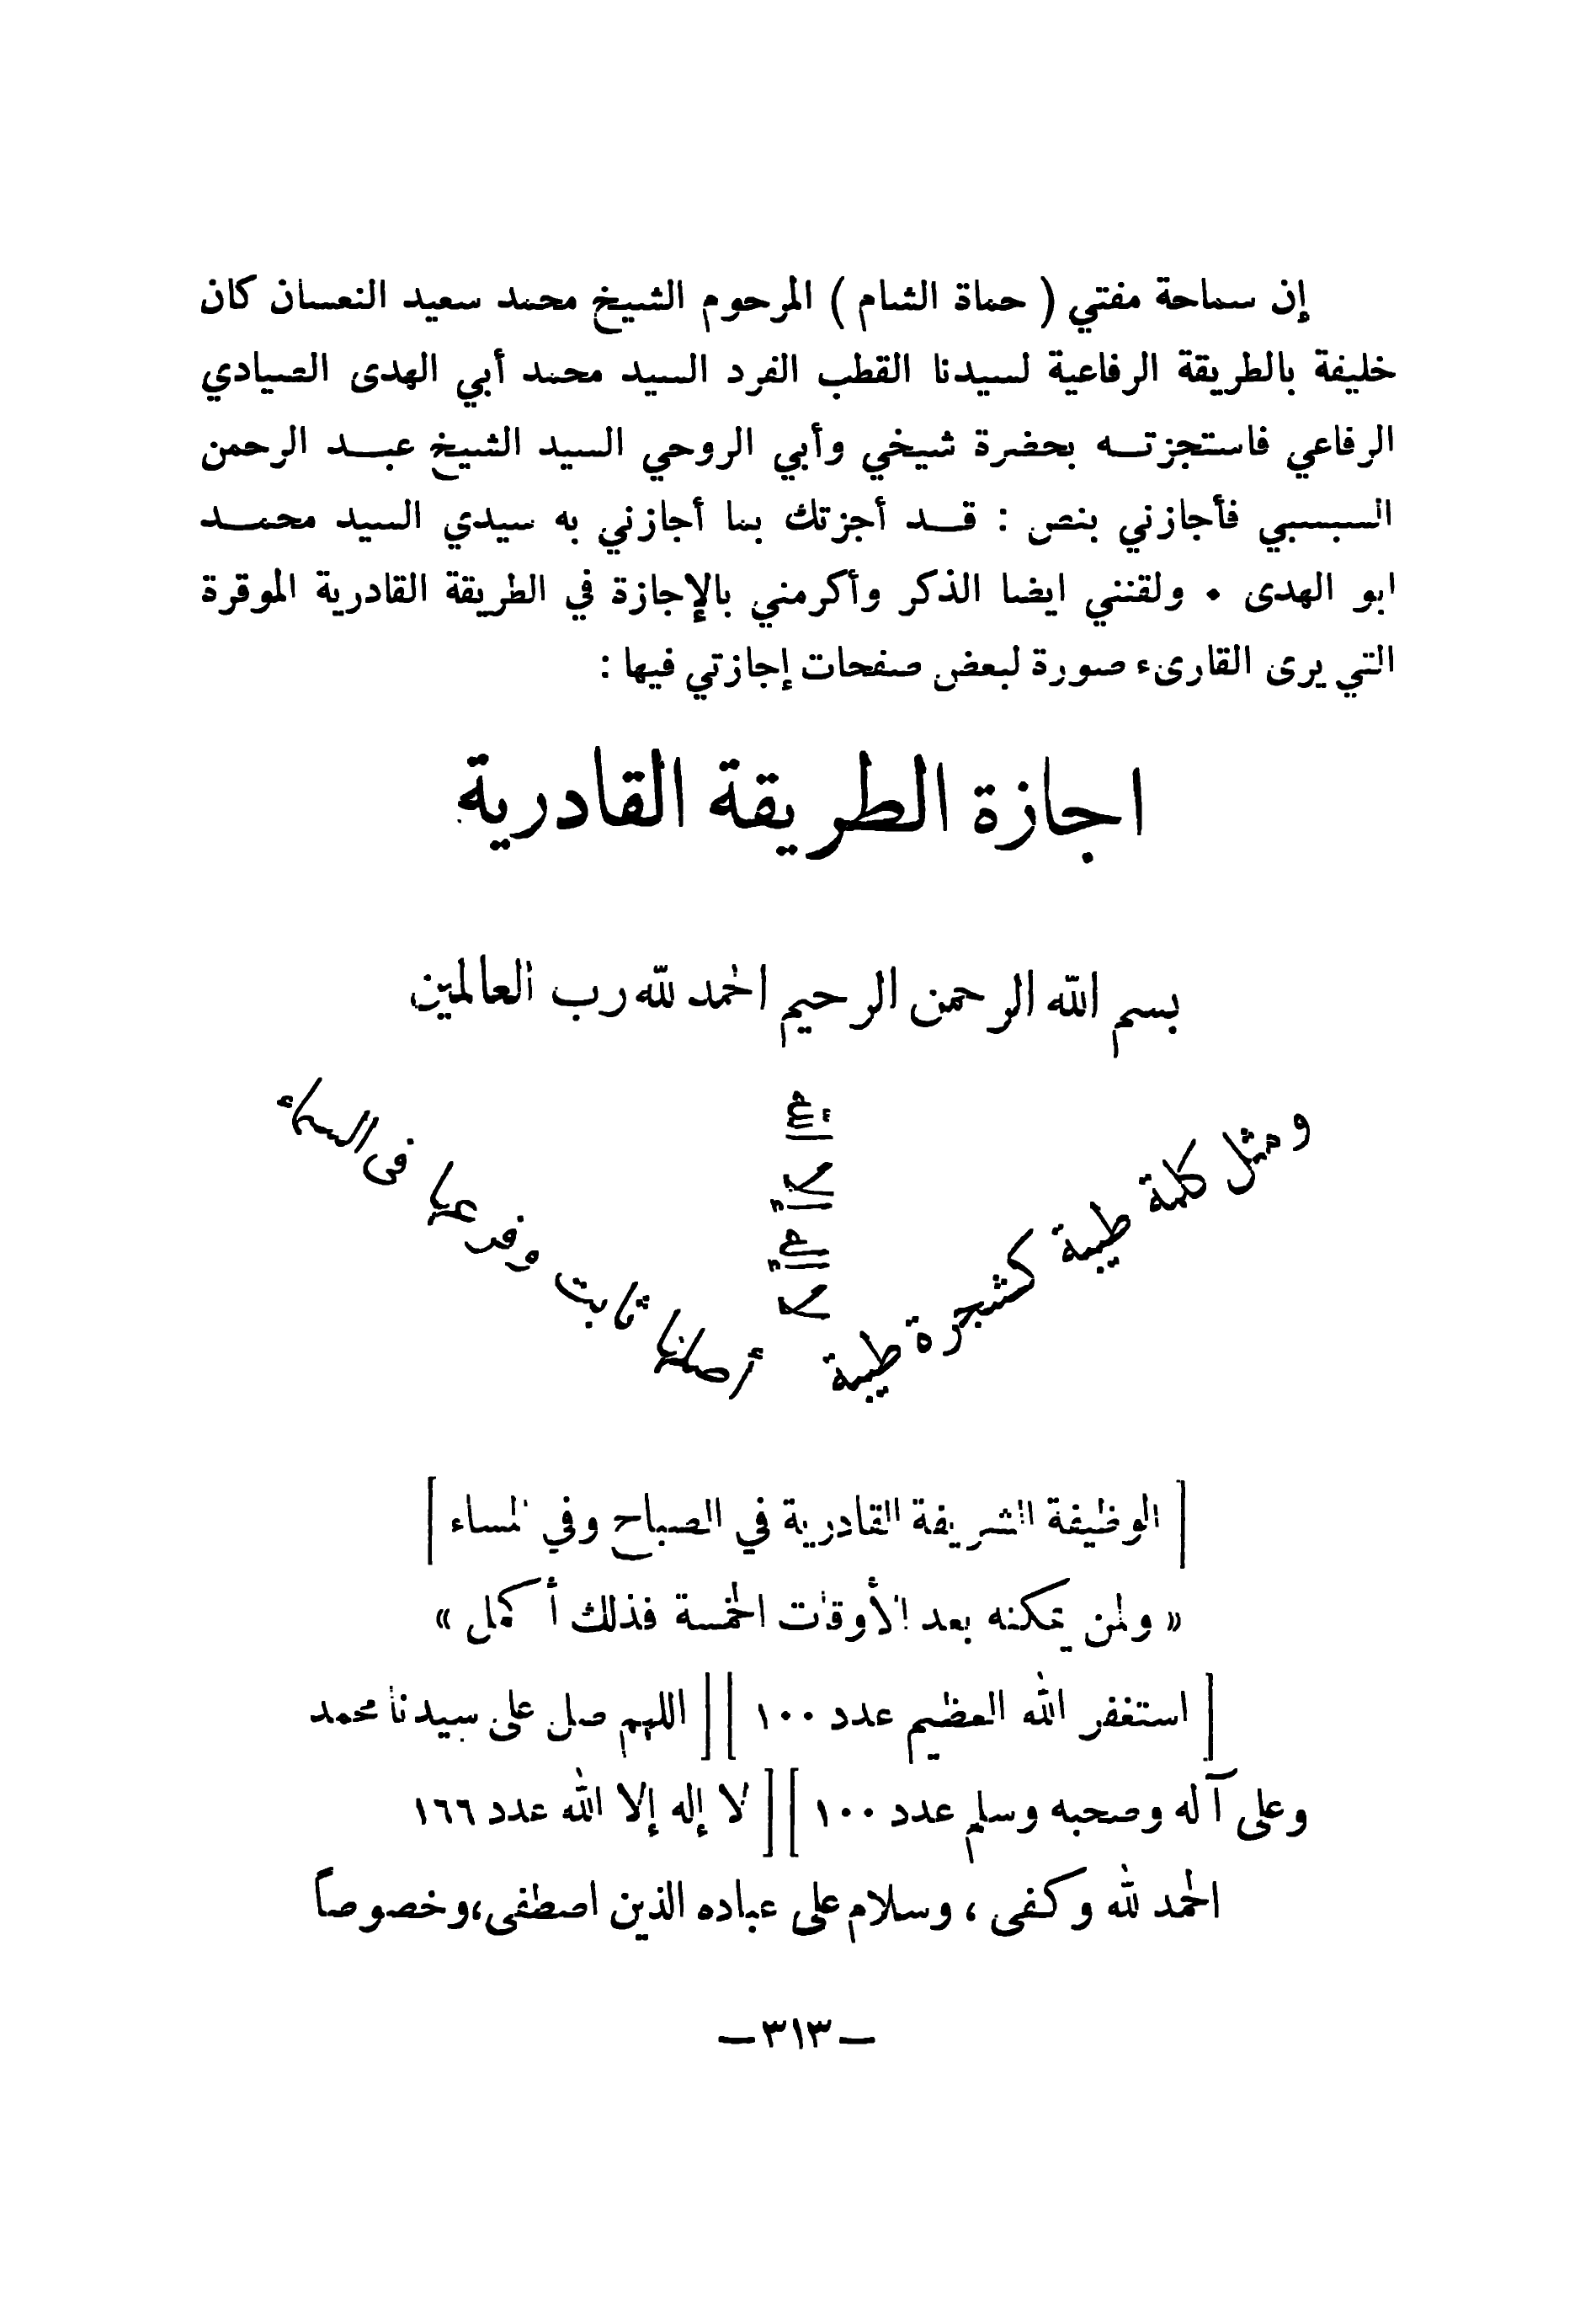 إن سماحة مفتي ( حماة الشام ) المرحوم الشيخ محمد سعيد النعسان كان
خليفة بالطريقة الرفاعية لسيدنا القطب الفرد السيد محمد أبي الهدى الصيادي
الرفاعي فاستجزته بحضرة شيخي وأبي الروحي السيد الشيخ عبد الرحمن
السبسبي فأجازني بنص : قد أجزتك بما أجازني به سيدي السيد محمد
ابو الهدى • ولقنني ايضا الذكر وأكرمني بالإجازة في الطريقة القادرية الموقرة
التي يرى القارىء صورة لبعض صفحات إجازتي فيها :
اجازة الطريقة القادرية
بسم الله الرحمن الرحيم الحمد لله رب العالمين
ومثل كلمة طيبة كشجرة طيبة
أصلها ثابت وفرعها فى السماء
[ الوظيفة الشريفة القادرية في الصباح وفي المساء ]
« ولمن يمكنه بعد الأوقات الخمسة فذلك أكمل »
[ استغفر الله العظيم عدد ١٠٠ ] [ اللهم صل على سيدنا محمد
وعلى آله وصحبه وسلم عدد ١٠٠ ] [ لا إله إلا الله عدد ١٦٦
الحمد لله وكفى ، وسلام على عباده الذين اصطفى ، وخصوصاً
— ٣١٣ —